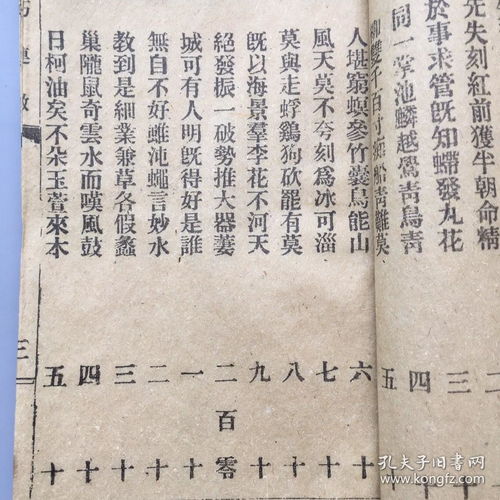 先失刻紅前獲半朝命精 二
於事求管既知蟒發丸花 三
同一掌池鱗越鶯靑鳥靑 四
雙千百寸 靑雞莫 五
人堪窮螟參竹囊鳥能山 六十
風天莫不兮刻爲冰可淄 七十
莫與走蜉鷄狗砍罷有莫 八十
旣以海景羣李花不河天 九十
絕發振一破勢推大器蔞 二百零
城可有人明旣得好是誰 一十
無自不好雖沌蠅言妙水 二十
教到是細業兼草各假蠡 三十
巢隴鼠奇雲水而嘆風鼓 四十
日柯油矣不朵玉蕾來木 五十
三
孔夫子旧书网
www.kongfz.com